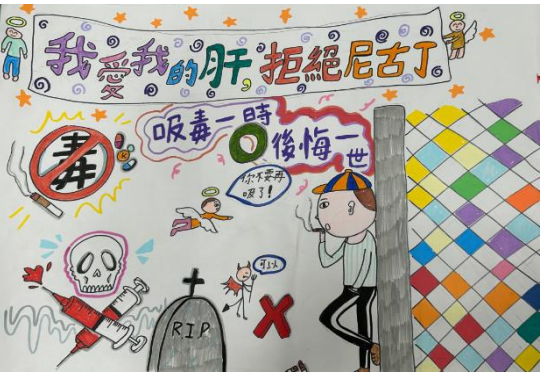 我愛我的肝,拒絕尼古丁
吸毒一時
後悔一世
毒
你不要再
吸了!
可以
RIP